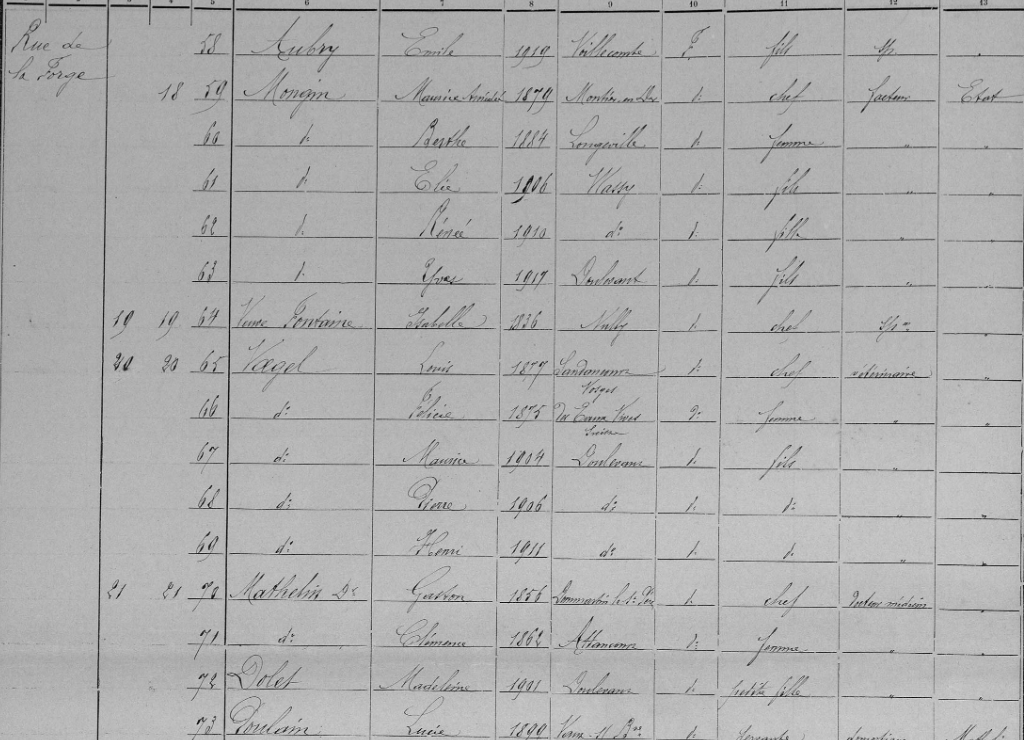 5 6 7 8 9 10 11 12 13
Rue de 58 Aubry Emile 1919 Voillecomte F. fils sp. "
la Forge
18 59 Mongin Maurice 1879 Montier-en-Der d: chef facteur Etat
60 d: Berthe 1884 Longeville d: femme " "
61 d: Elie 1906 Wassy d: fils " "
62 d: Rénée 1910 d: d: fille " "
63 d: Yves 1917 Doulevant d: fils " "
19 19 64 Veuve Fontaine Isabelle 1836 Nully d: chef "
20 20 65 Vœgel Louis 1877 d: chef vétérinaire "
Vosges
66 d: Félicie 1875 Eaux Vives d: femme " "
Suisse
67 d: Maurice 1904 Doulevant d: fils " "
68 d: Pierre 1906 d: d: d: " "
69 d: Henri 1911 d: d: d: " "
21 21 70 Mathelin Dr Gaston 1856 d: chef docteur médecin "
71 d: Clémence 1862 Attancourt d: femme " "
72 Dolet Madeleine 1901 Doulevant d: petite fille " "
73 Poulain Lucie 1899 d: servante domestique